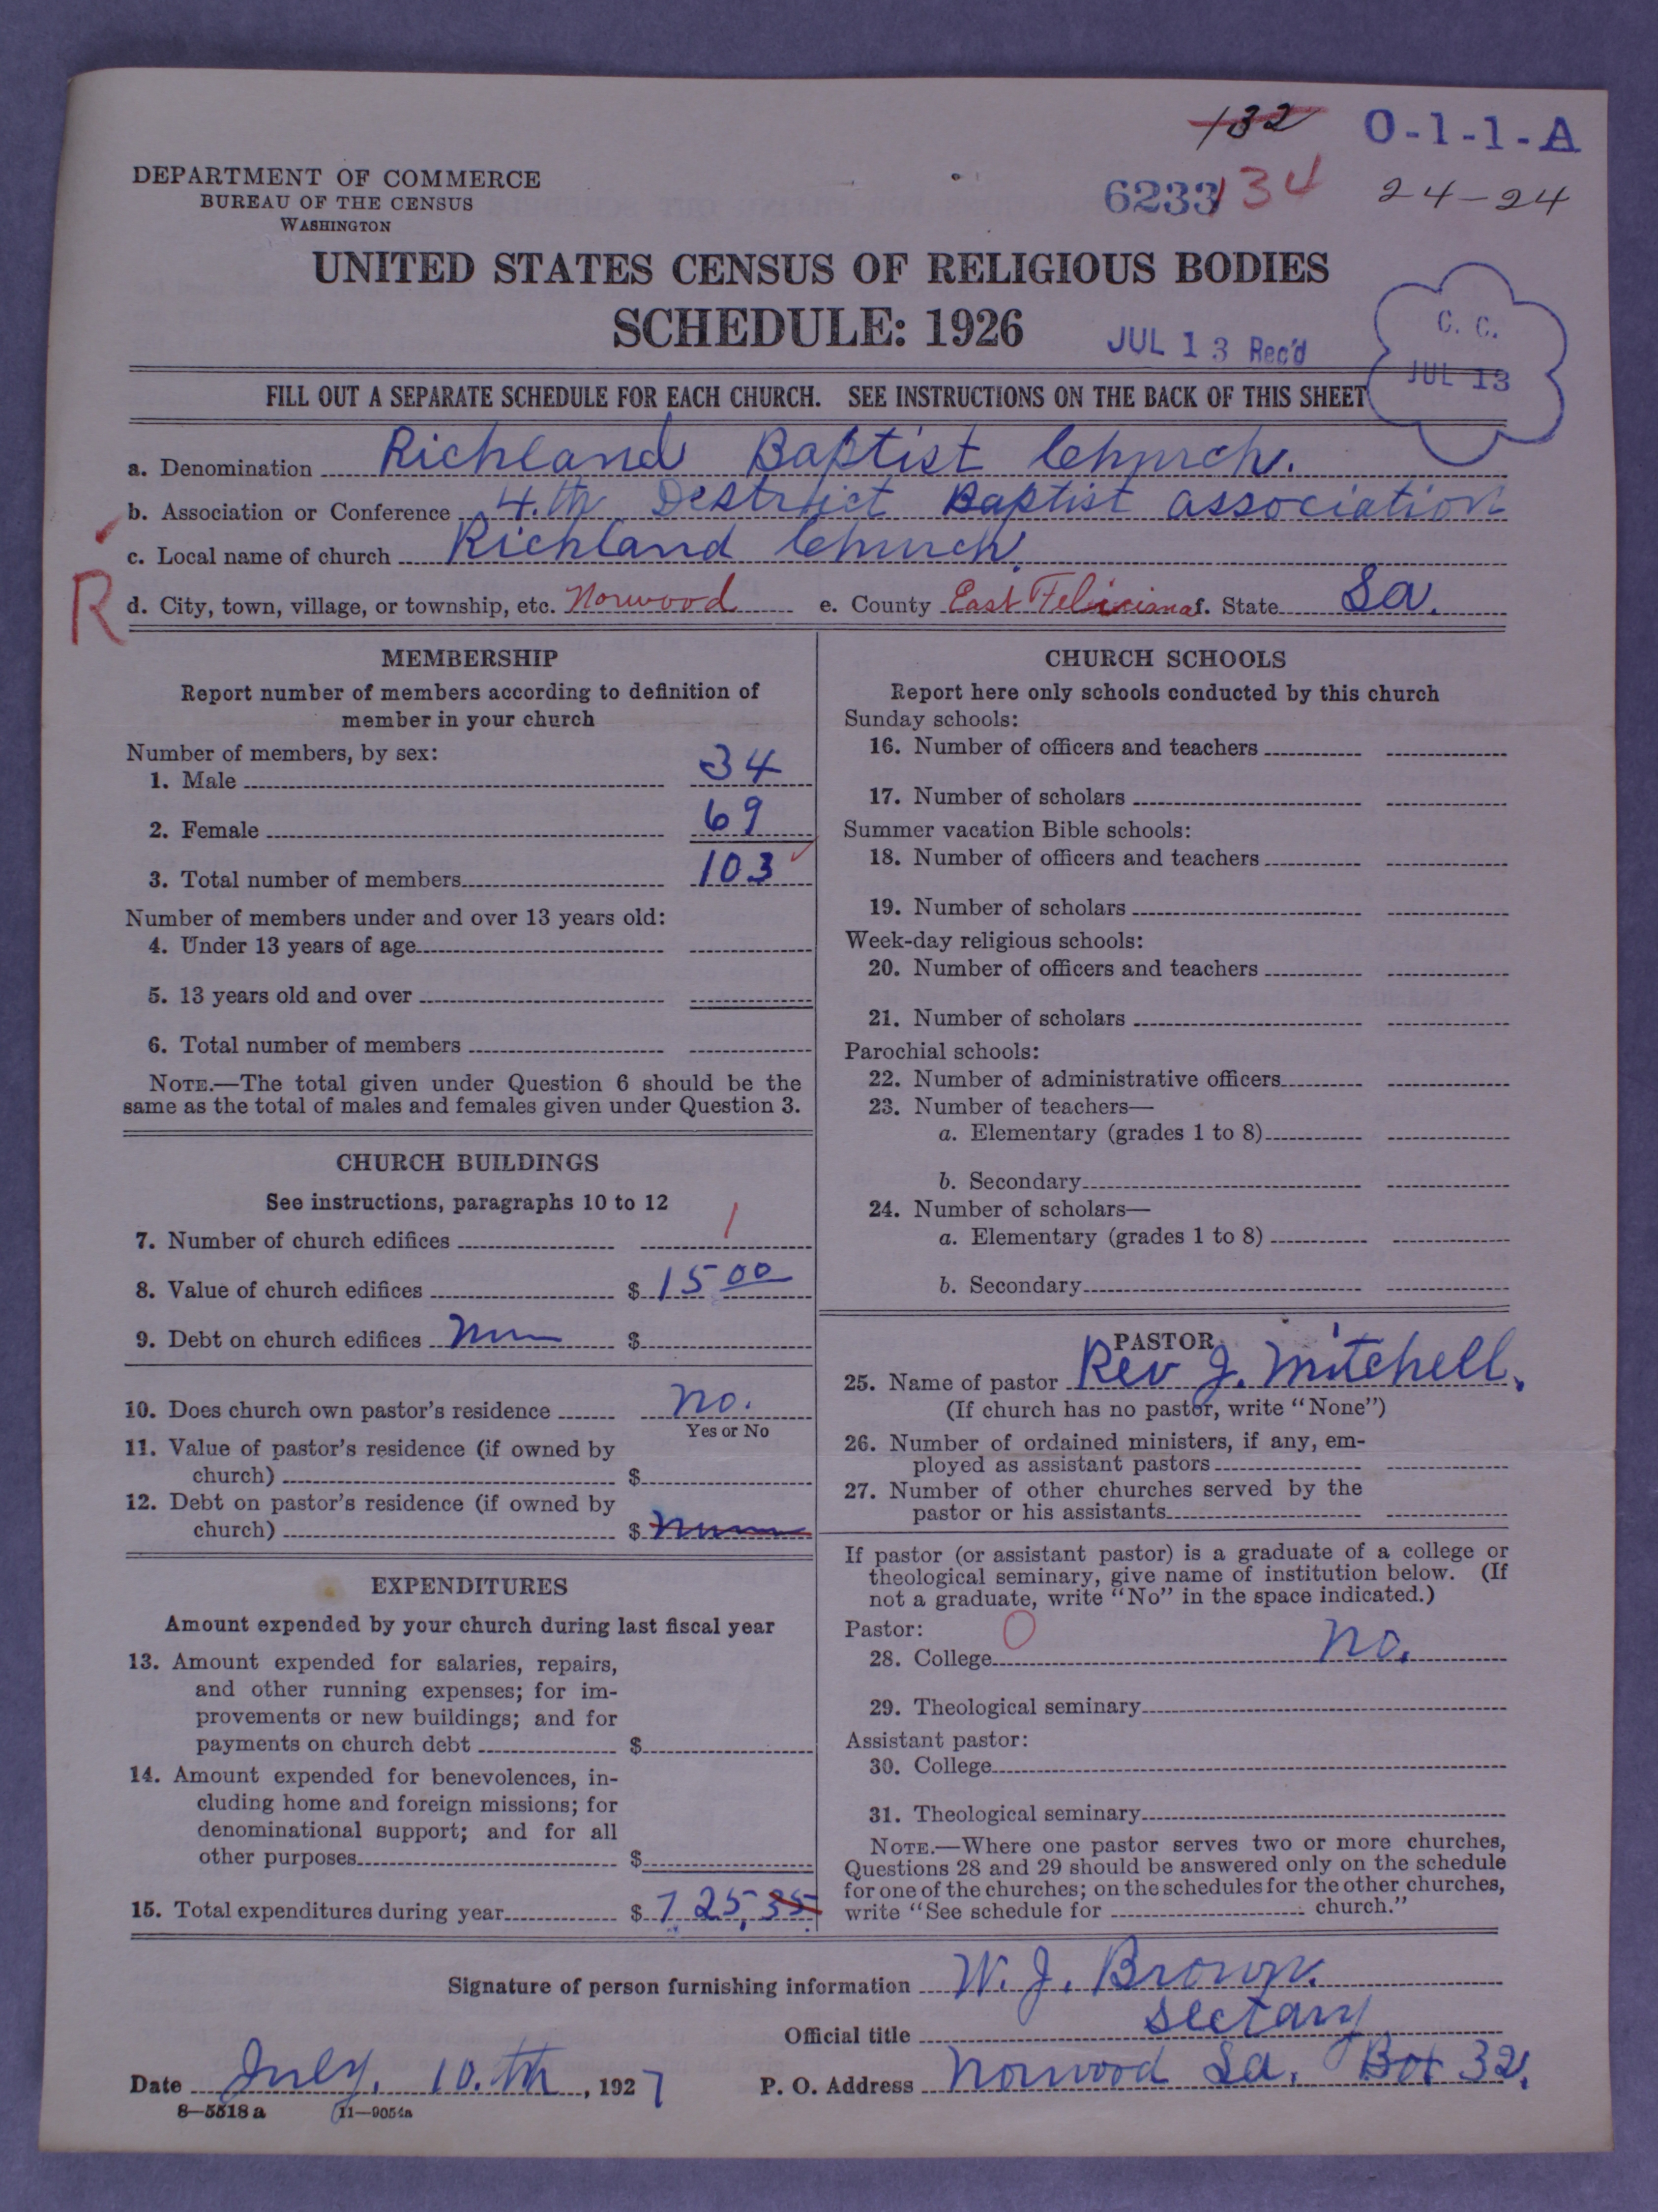 132 O-1-1-A
DEPARTMENT OF COMMERCE
BUREAU OF THE CENSUS
WASHINGTON
6233 134 24-24
UNITED STATES CENSUS OF RELIGIOUS BODIES
SCHEDULE: 1926
JUL 13 Rec'd
C. C.
JUL 13
FILL OUT A SEPARATE SCHEDULE FOR EACH CHURCH. SEE INSTRUCTIONS ON THE BACK OF THIS SHEET
a. Denomination Richland Baptist Church.
b. Association or Conference 4.th Destrict Baptist association
c. Local name of church Richland Church.
R
d. City, town, village, or township, etc. Norwood e. County East Feliciana f. State La.
MEMBERSHIP
Report number of members according to definition of
member in your church
Number of members, by sex:
1. Male 34
2. Female 69
3. Total number of members 103
Number of members under and over 13 years old:
4. Under 13 years of age
5. 13 years old and over
6. Total number of members
NOTE.—The total given under Question 6 should be the
same as the total of males and females given under Question 3.
CHURCH BUILDINGS
See instructions, paragraphs 10 to 12
7. Number of church edifices 1
8. Value of church edifices $ 15 00
9. Debt on church edifices $
10. Does church own pastor's residence no.
Yes or No
11. Value of pastor's residence (if owned by
church) $
12. Debt on pastor's residence (if owned by
church) $
EXPENDITURES
Amount expended by your church during last fiscal year
13. Amount expended for salaries, repairs,
and other running expenses; for im-
provements or new buildings; and for
payments on church debt $
14. Amount expended for benevolences, in-
cluding home and foreign missions; for
denominational support; and for all
other purposes $
15. Total expenditures during year $ 725,35
CHURCH SCHOOLS
Report here only schools conducted by this church
Sunday schools:
16. Number of officers and teachers
17. Number of scholars
Summer vacation Bible schools:
18. Number of officers and teachers
19. Number of scholars
Week-day religious schools:
20. Number of officers and teachers
21. Number of scholars
Parochial schools:
22. Number of administrative officers
23. Number of teachers—
a. Elementary (grades 1 to 8)
b. Secondary
24. Number of scholars—
a. Elementary (grades 1 to 8)
b. Secondary
PASTOR
25. Name of pastor Rev J. Mitchell.
(If church has no pastor, write "None")
26. Number of ordained ministers, if any, em-
ployed as assistant pastors
27. Number of other churches served by the
pastor or his assistants
If pastor (or assistant pastor) is a graduate of a college or
theological seminary, give name of institution below. (If
not a graduate, write "No" in the space indicated.)
Pastor: 0
28. College no.
29. Theological seminary
Assistant pastor:
30. College
31. Theological seminary
NOTE.—Where one pastor serves two or more churches,
Questions 28 and 29 should be answered only on the schedule
for one of the churches; on the schedules for the other churches,
write "See schedule for church."
Signature of person furnishing information W. J. Brown.
Official title sectary
Date July. 10.th, 1927 P. O. Address Norwood La. Box 32.
8—5518 a 11—9054a